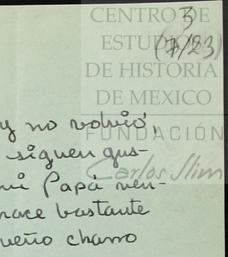 CENTRO DE
3
ESTUDIOS
(7/23)
DE HISTORIA
DE MEXICO
y no volvió,
FUNDACIÓN
siguen gus-
Carlos Slim
mi Papá ven-
hace bastante
queño charro